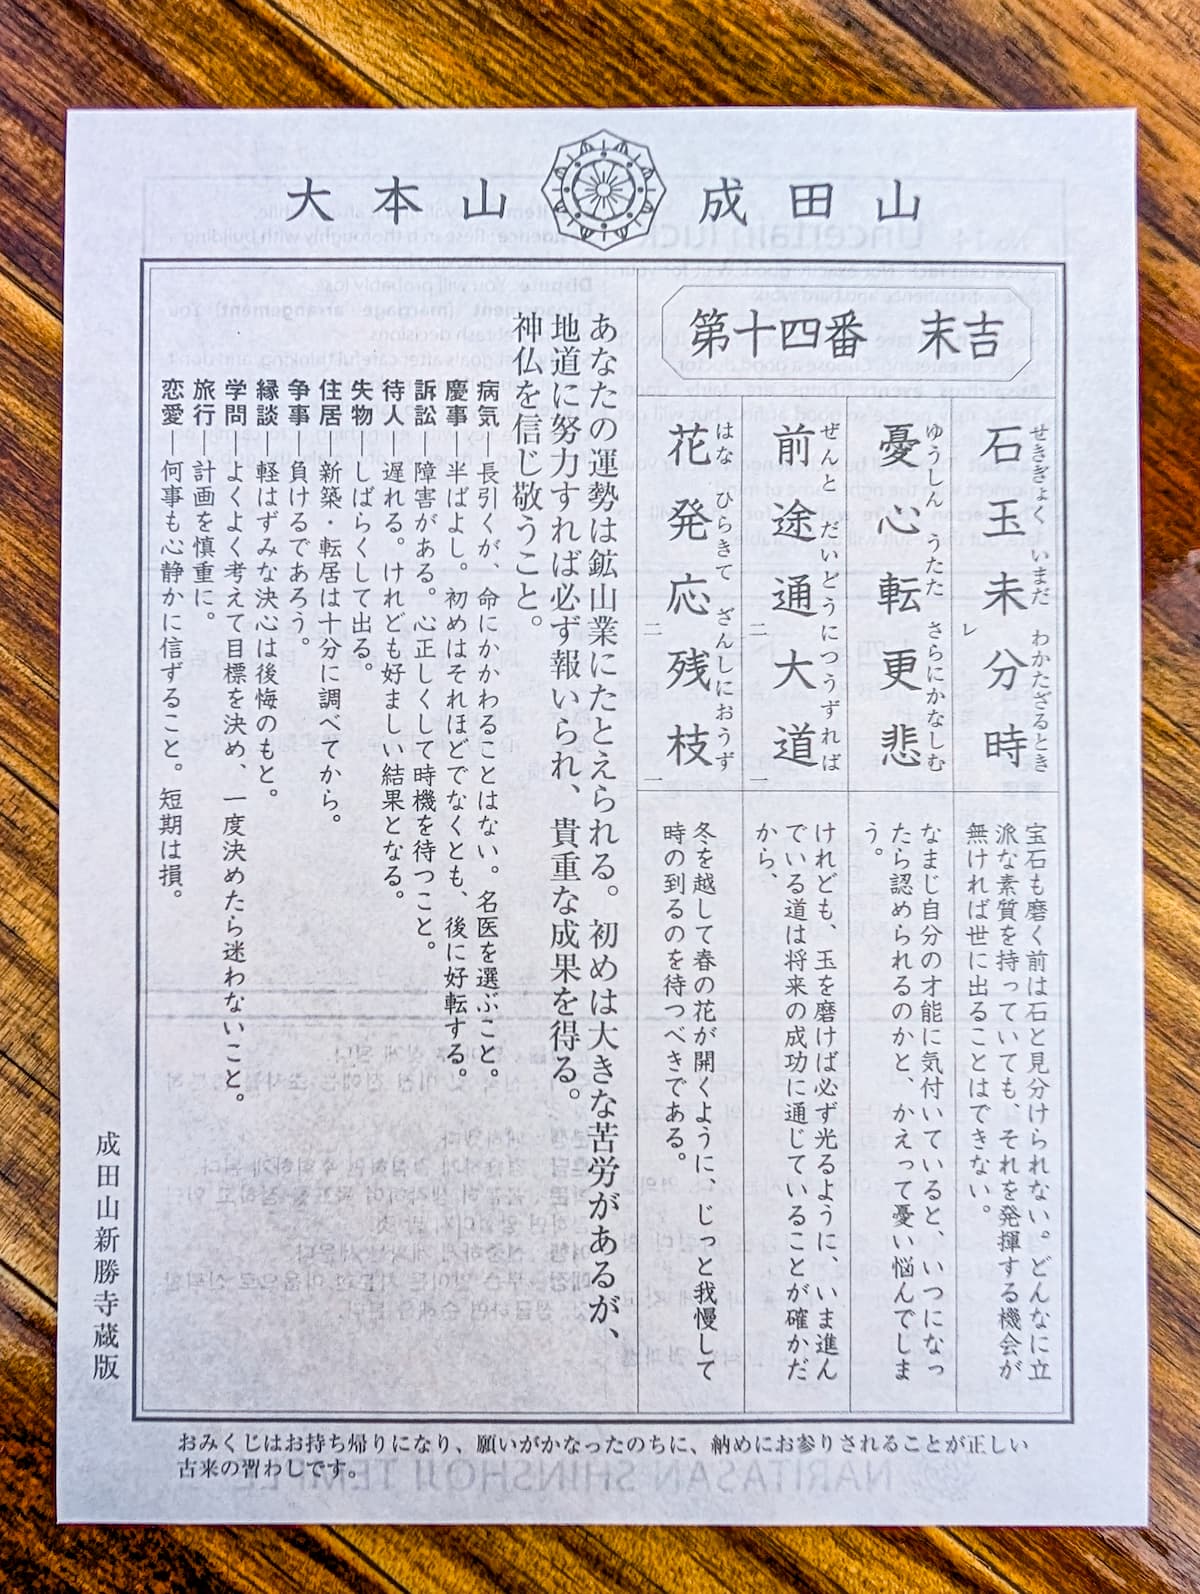 大本山 成田山
第十四番 末吉
石玉未分時
せきぎょく いまだ わかたざるとき
レ
宝石も磨く前は石と見分けられない。どんなに立
派な素質を持っていても、それを発揮する機会が
無ければ世に出ることはできない。
憂心転更悲
ゆうしん うたた さらにかなしむ
なまじ自分の才能に気付いていると、いつになっ
たら認められるのかと、かえって憂い悩んでしま
う。
前途通大道
ぜんと だいどうにつうずれば
二 一
けれども、玉を磨けば必ず光るように、いま進ん
でいる道は将来の成功に通じていることが確かだ
から、
花発応残枝
はな ひらきて ざんしにおうず
二 一
冬を越して春の花が開くように、じっと我慢して
時の到るのを待つべきである。
あなたの運勢は鉱山業にたとえられる。初めは大きな苦労があるが、
地道に努力すれば必ず報いられ、貴重な成果を得る。
神仏を信じ敬うこと。
病気―長引くが、命にかかわることはない。名医を選ぶこと。
慶事―半ばよし。初めはそれほどでなくとも、後に好転する。
訴訟―障害がある。心正しくして時機を待つこと。
待人―遅れる。けれども好ましい結果となる。
失物―しばらくして出る。
住居―新築・転居は十分に調べてから。
争事―負けるであろう。
縁談―軽はずみな決心は後悔のもと。
学問―よくよく考えて目標を決め、一度決めたら迷わないこと。
旅行―計画を慎重に。
恋愛―何事も心静かに信ずること。短期は損。
成田山新勝寺蔵版
おみくじはお持ち帰りになり、願いがかなったのちに、納めにお参りされることが正しい
古来の習わしです。
NARITASAN SHINSHOJI TEMPLE